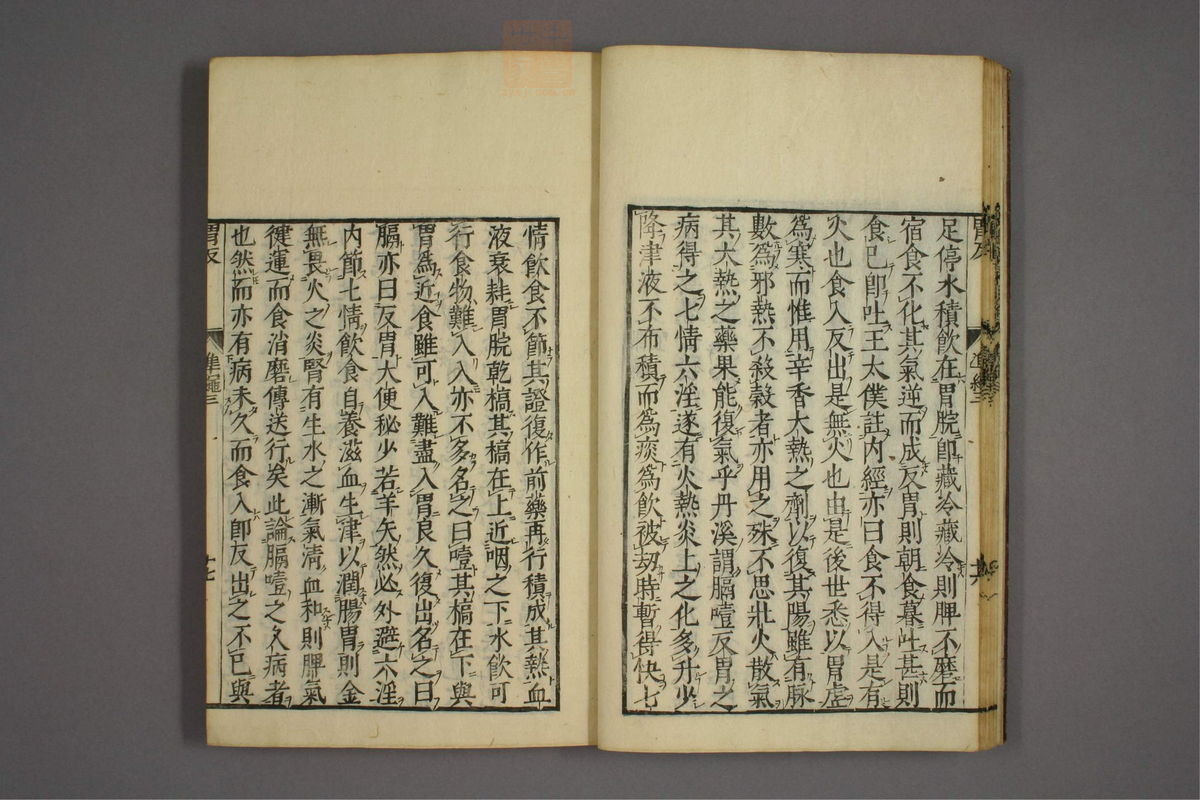 足停水積飲在胃脘卽藏冷藏冷則脾不磨而
宿食不化其氣逆而成反胃則朝食暮吐甚則
食已卽吐王太僕註內經亦曰食不得入是有
火也食入反出是無火也由是後世悉以胃虛
爲寒而惟用辛香大熱之劑以復其陽雖有脉
數爲邪熱不殺穀者亦用之殊不思壯火散氣
其大熱之藥果能復氣乎丹溪謂膈噎反胃之
病得之七情六淫遂有火熱炎上之化多升少
降津液不布積而爲痰爲飲被劫時暫得快七
情飲食不節其證復作前藥再行積成其熱血
液衰耗胃脘乾槁其槁在上近咽之下水飲可
行食物難入入亦不多名之曰噎其槁在下與
胃爲近食雖可入難盡入胃良久復出名之曰
膈亦曰反胃大便秘少若羊矢然必外避六淫
內節七情飲食自養滋血生津以潤腸胃則金
無畏火之炎腎有生水之漸氣清血和則脾氣
健運而食消磨傳送行矣此論膈噎之久病者
也然而亦有病未久而食入卽反出之不已與
胃反
準繩三
十七